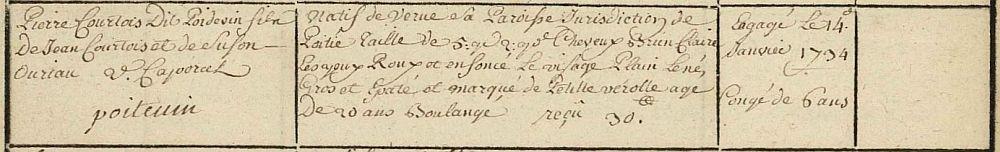 Pierre Courtois Dit Poidevin fils
De Jean Courtois et de Suson
Ouriau Vt. Caporal
poitevin
Natif de Verne Sa Paroisse Jurisdiction de
Poitie Taille de 5. ps 2. ps Cheveux Brun Claire
Les yeux Roux et enfoncé Le visage Plain Le né
Gros et Epaté et marqué de Petitte verolle agé
De 20 ans Boulangé reçû 30.
Engagé Le 14e
Janvié 1734
Congé de 6 ans